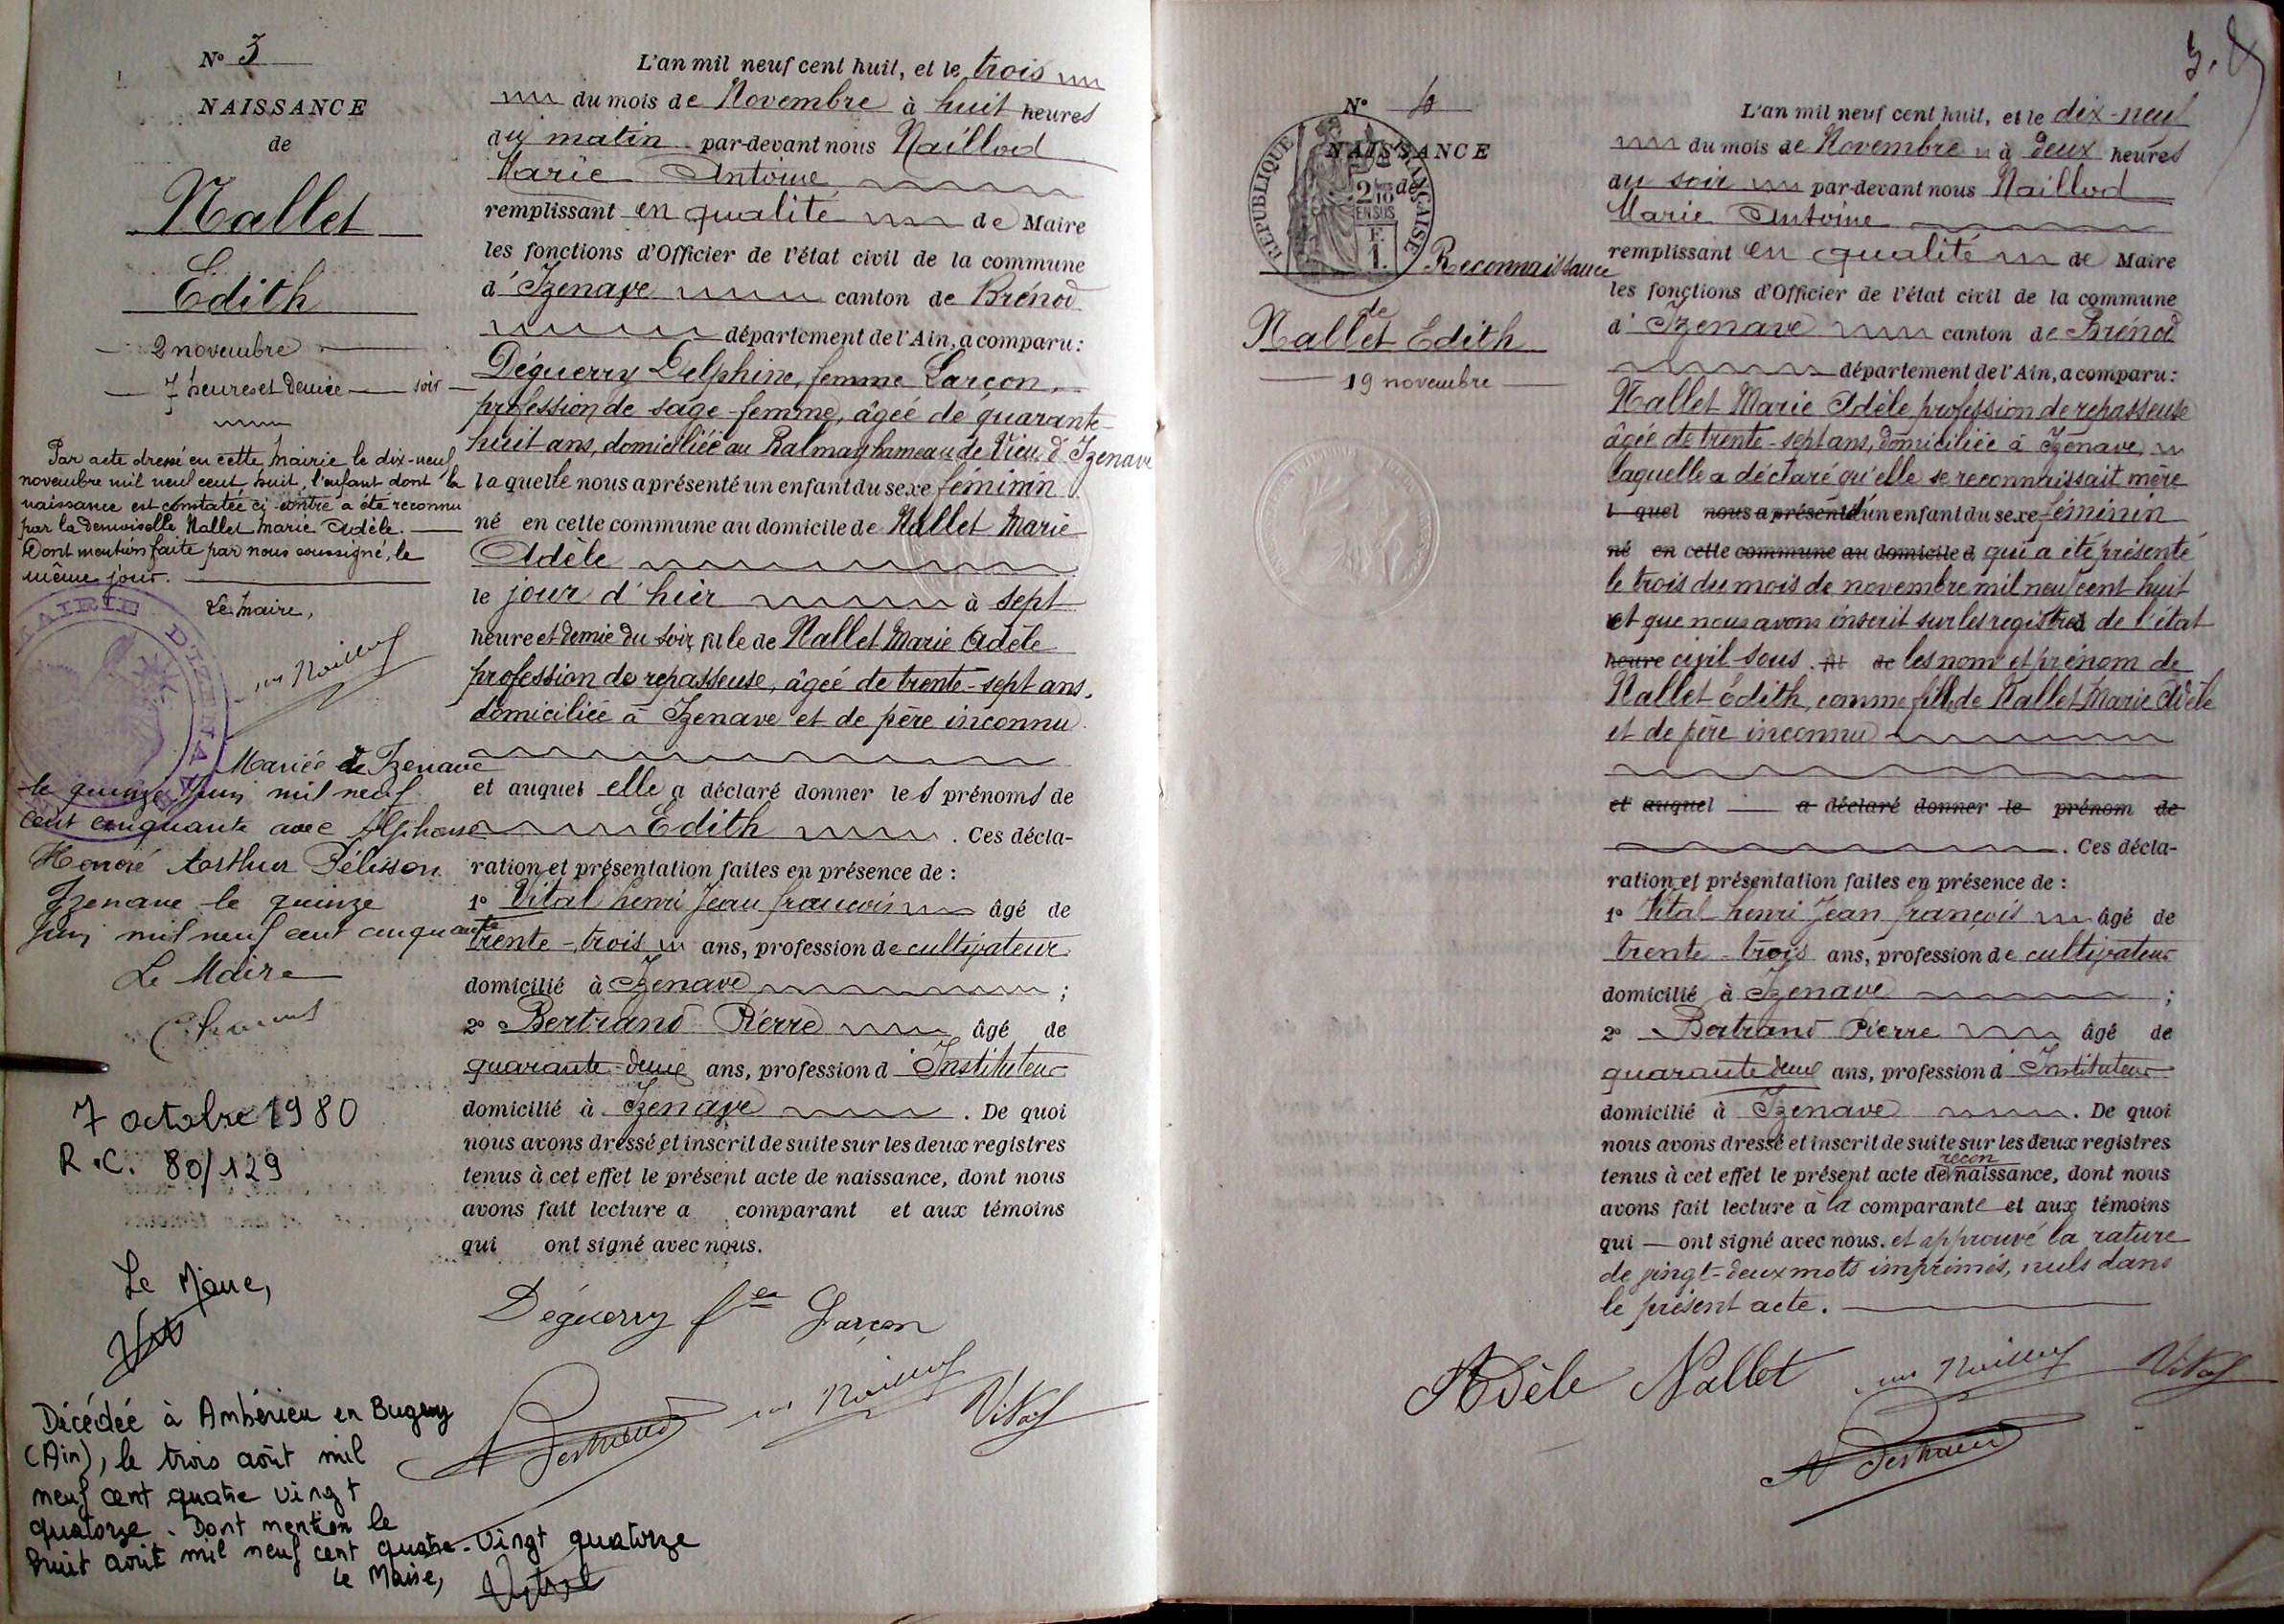 N° 3
NAISSANCE
de
Nallet
Edith
2 novembre
7 heures et demie soir
Par acte dressé en cette Mairie le dix-neuf
novembre mil neuf cent huit, l'enfant dont la
naissance est constatée ci-contre a été reconnu
par la demoiselle Nallet Marie Adèle.
Dont mention faite par nous soussigné, le
même jour.
Le Maire,
Mariée à Izenave
le quinze Juin mil neuf
cent cinquante avec Alphonse
Honoré Arthur Pélisson
Izenave le quinze
Juin mil neuf cent cinquante
Le Maire
7 octobre 1980
R.C. 80/129
Le Maire,
Décédée à Ambérieu en Bugey
(Ain), le trois août mil
neuf cent quatre vingt
quatorze. Dont mention le
huit août mil neuf cent quatre-vingt quatorze
Le Maire,
L'an mil neuf cent huit, et le trois
du mois de Novembre à huit heures
du matin par-devant nous Naillod
Marie Antoine
remplissant en qualité de Maire
les fonctions d'Officier de l'état civil de la commune
d'Izenave canton de Brénod
département de l'Ain, a comparu:
Déguerry Delphine, femme Garçon,
profession de sage-femme, âgée de quarante-
huit ans, domiciliée au Balmay hameau de Vieu d'Izenave
laquelle nous a présenté un enfant du sexe féminin
né en cette commune au domicile de Nallet Marie
Adèle
le jour d'hier à sept
heure et demie du soir, fille de Nallet Marie Adèle
profession de repasseuse, âgée de trente-sept ans,
domiciliée à Izenave et de père inconnu
et auquel elle a déclaré donner les prénoms de
Edith. Ces décla-
ration et présentation faites en présence de :
1° Vital henri Jean françois âgé de
trente-trois ans, profession de cultivateur
domicilié à Izenave ;
2° Bertrand Pierre âgé de
quarante-deux ans, profession d'Instituteur
domicilié à Izenave. De quoi
nous avons dressé et inscrit de suite sur les deux registres
tenus à cet effet le présent acte de naissance, dont nous
avons fait lecture a comparant et aux témoins
qui ont signé avec nous.
Déguerry fe Garçon
Vital
3.
N° 4
NAISSANCE
de
RÉPUBLIQUE FRANÇAISE
2/10 EN SUS
F. 1.
Reconnaissance
de
Nallet Edith
19 novembre
L'an mil neuf cent huit, et le dix-neuf
du mois de Novembre à deux heures
du soir par-devant nous Naillod
Marie Antoine
remplissant en qualité de Maire
les fonctions d'Officier de l'état civil de la commune
d'Izenave canton de Brénod
département de l'Ain, a comparu:
Nallet Marie Adèle profession de repasseuse
âgée de trente-sept ans, domiciliée à Izenave,
laquelle a déclaré qu'elle se reconnaissait mère
l quel nous a présenté d'un enfant du sexe féminin
né en cette commune au domicile d qui a été présenté
le trois du mois de novembre mil neuf cent huit
et que nous avons inscrit sur les registres de l'état
heure civil sous fil de les nom et prénom de
Nallet Edith, comme fille de Nallet Marie Adèle
et de père inconnu
et auquel a déclaré donner le prénom de
. Ces décla-
ration et présentation faites en présence de :
1° Vital henri Jean françois âgé de
trente-trois ans, profession de cultivateur
domicilié à Izenave ;
2° Bertrand Pierre âgé de
quarante deux ans, profession d'Instituteur
domicilié à Izenave. De quoi
nous avons dressé et inscrit de suite sur les deux registres
recon
tenus à cet effet le présent acte de naissance, dont nous
avons fait lecture à la comparante et aux témoins
qui — ont signé avec nous. et approuvé la rature
de vingt-deux mots imprimés, nuls dans
le présent acte.
Adèle Nallet
Vital